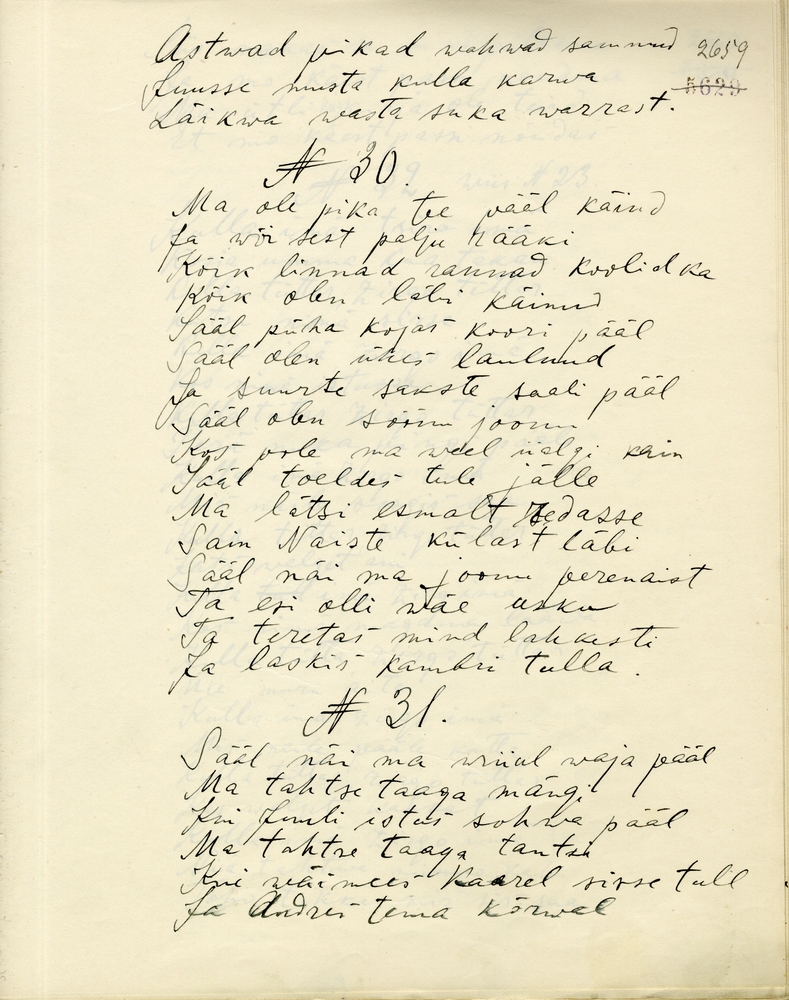 Astwad pikad wahwad sammud 2659
Juusse musta kulla karwa 5629
Läikwa wasta suka warrast.
№ 30.
Ma ole pika tee pääl käind
Ja wöi sest palju rääki
Köik linnad rannad koolid ka
Köik olen läbi käinud
Sääl püha kojas koori pääl
Sääl olen ühes laulnud
Ja suurte sakste saali pääl
Sääl olen söönu joonu
Kos pole ma weel iialgi käin
Sääl toeldes tule jälle
Ma lätsi esmalt Redasse
Sain Naiste külast läbi
Sääl näi ma joonu perenaist
Ta esi olli wäe usku
Ta teretas mind lahkesti
Ja laskis kambri tulla.
№ 31.
Sääl näi ma wiiul waja pääl
Ma tahtse taaga mängi
Kui Juuli istus sohwa pääl
Ma tahtse taaga tantsi
Kui wäimees Kaarel sisse tull
Ja Andres tema körwal